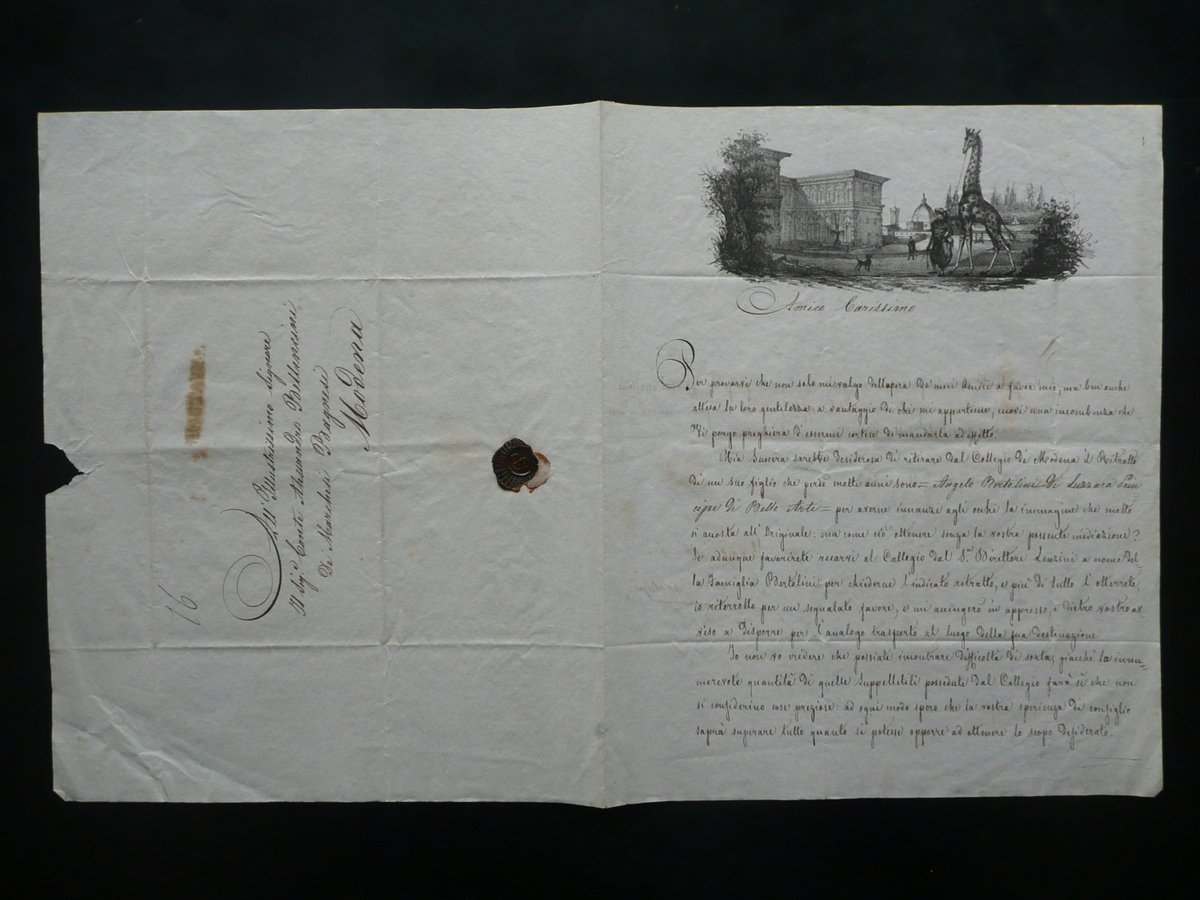 Amico Carissimo
Per provarvi che non solo mi valgo dell'opera de' miei Amici a favor mio, ma ben anche
attesa la loro gentilezza a vantaggio di chi mi appartiene, eccovi una incombenza che
Vi porgo preghiera d'essermi cortese di mandarla ad effetto.
Mia Suocera sarebbe desiderosa di ritirare dal Collegio di Modena il Ritratto
di un suo figlio che perdè molti anni sono = Angelo Bortolini di Luzzara Prin=
cipe di Belle Arti = per averne innanzi agli occhi la immagine che molto
si accosta all'Originale; ma come ciò ottenere senza la vostra possente mediazione?
Se adunque favorirete recarvi al Collegio dal Sr. Direttore Lenzini a nome del=
la Famiglia Bortolini per chiederne l'indicato ritratto, e più di tutto l'otterrete,
io riterrollo per un segnalato favore, e mi accingerò in appresso, e dietro vostro av=
viso a disporre per l'analogo trasporto al luogo della sua destinazione
Io non vo credere che possiate incontrare difficoltà di sorta, giacchè la innu=
merevole quantità di quelle suppellettili possedute dal Collegio farà sì che non
si considerino cose preziose: ad ogni modo spero che la vostra sperienza di consiglio
saprà superare tutto quanto si potesse opporre ad ottenere lo scopo desiderato.
All'Illustrissimo Signore
Il Sig. Conte Alessandro Bellencini
De Marchesi Bagnesi
Modena
16
1